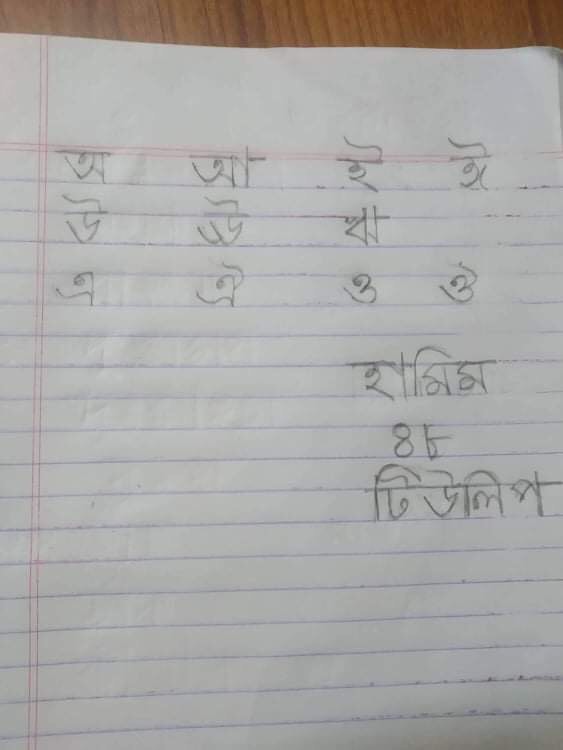 অ আ ই ঈ
উ ঊ ঋ
এ ঐ ও ঔ
হামিম
৪৮
টিউলিপ